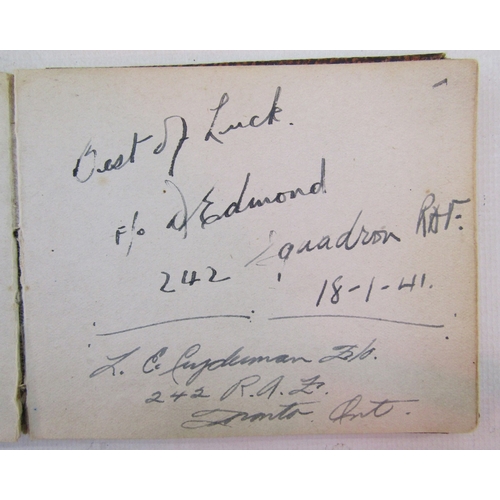 Best of Luck.
F/o D Edmond
242 Squadron RAF.
18-1-41.
L. C. Cryderman F/o.
242 R.A.F.
Toronto. Ont.